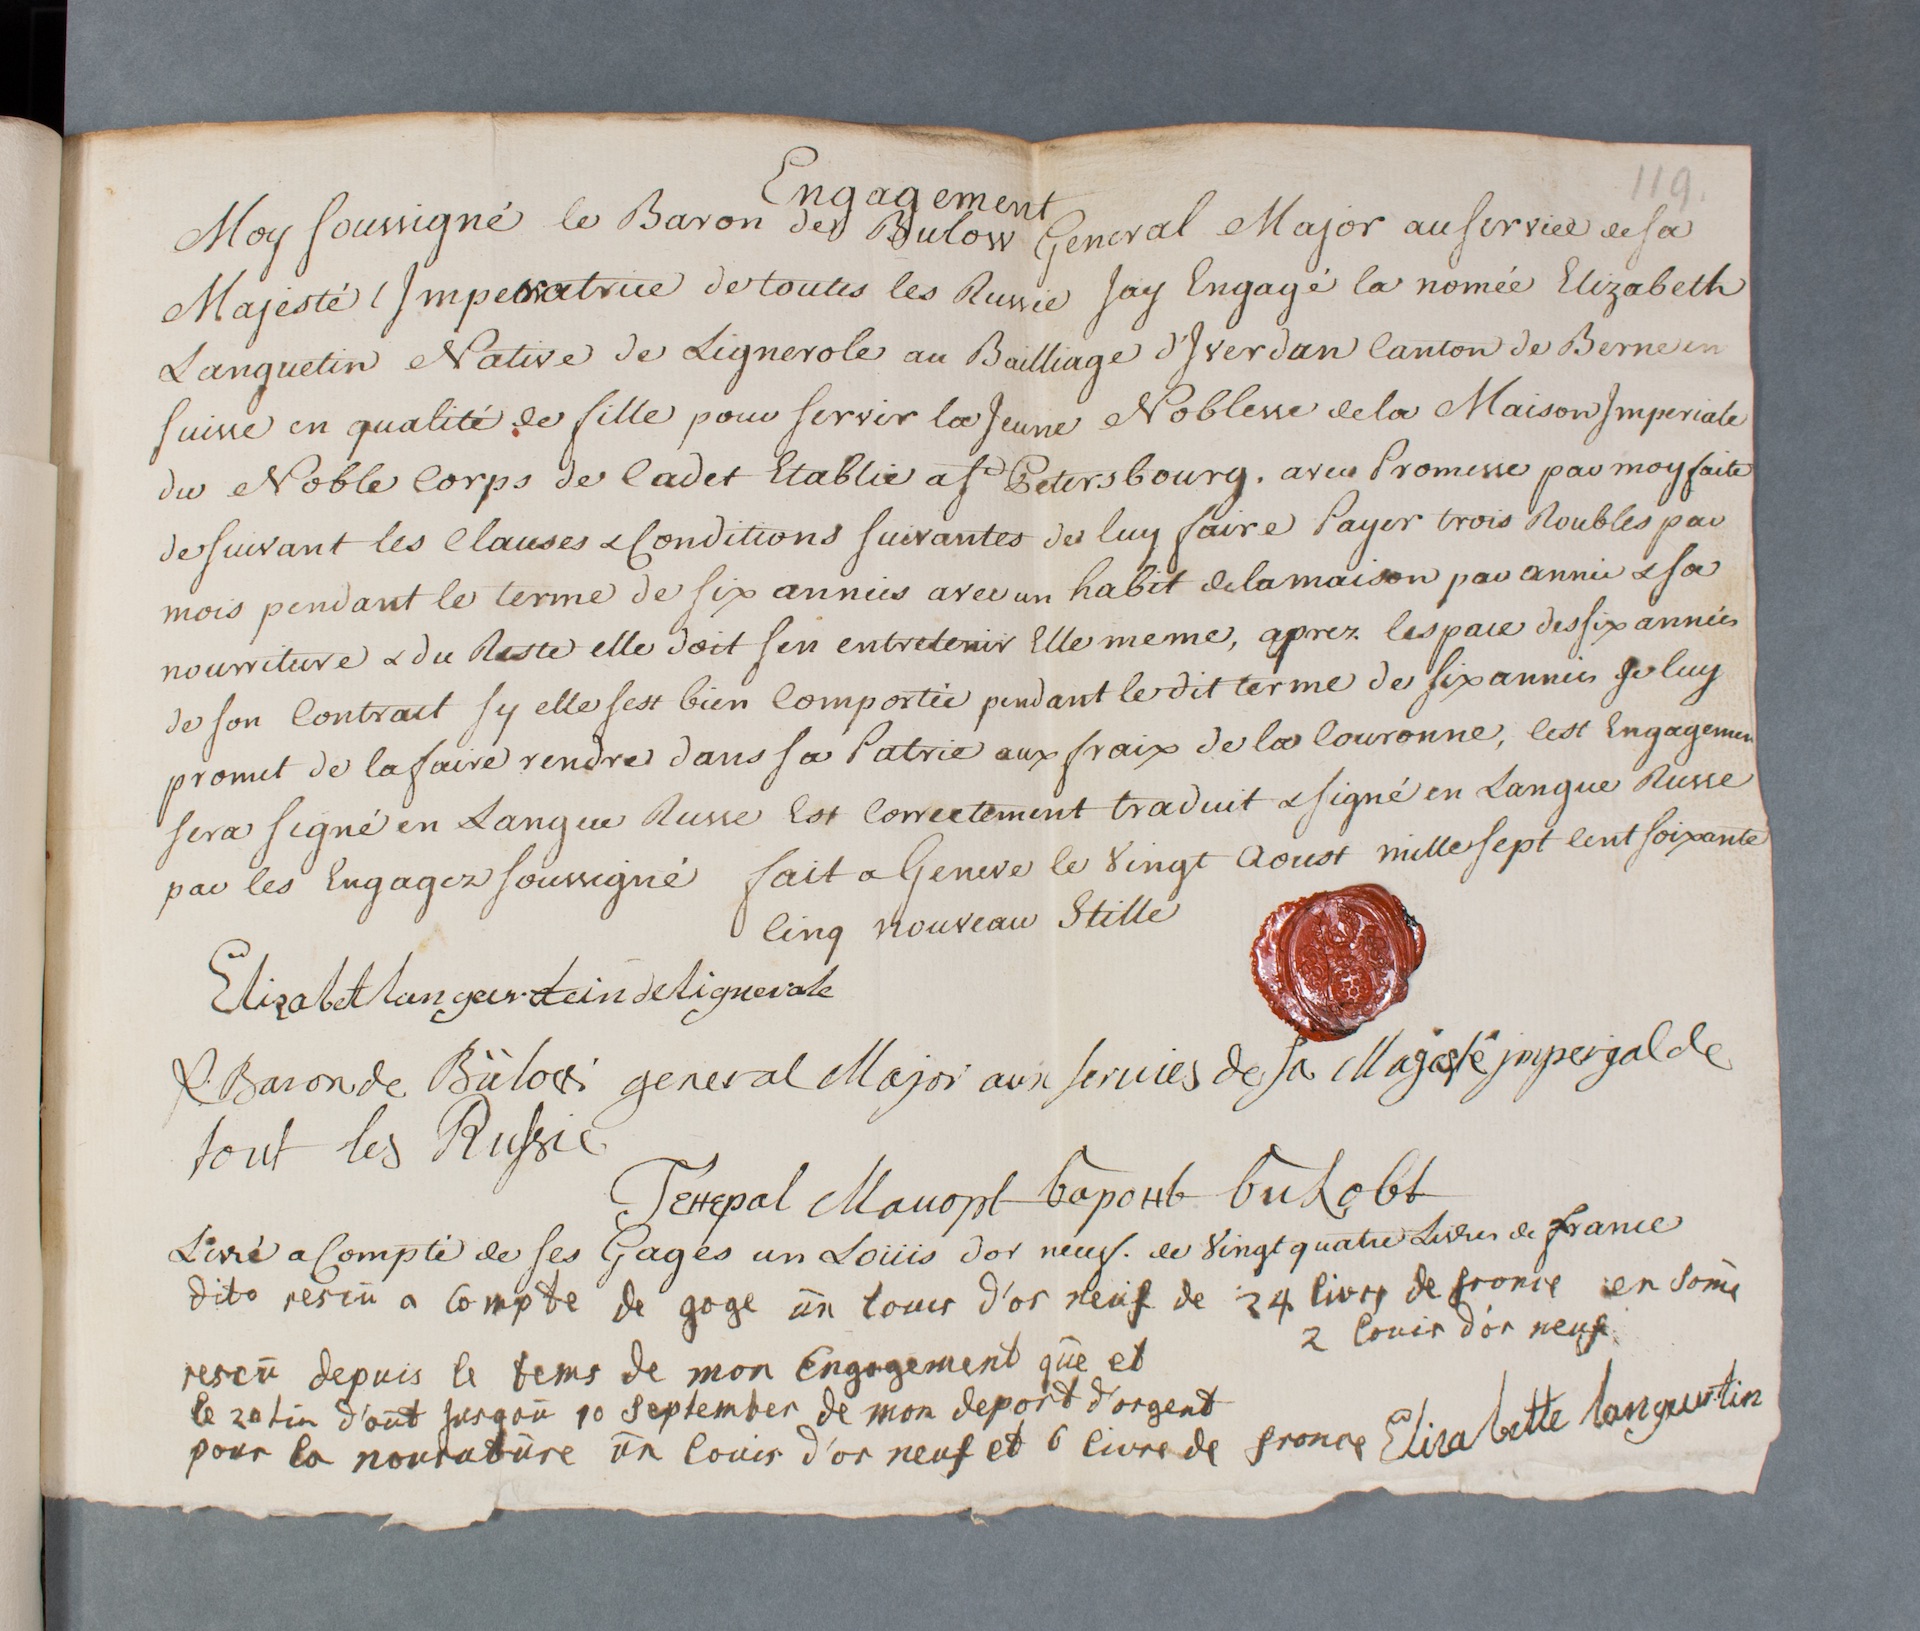 119.
Engagement
Moy soussigné le Baron de Bulow General Major au service de sa
Majesté Imperatrice de toutes les Russie Jay Engagé la nomée Elizabeth
Languetin Native de Lignerole au Bailliage d'Iverdun Canton de Berne en
Suisse en qualité de fille pour servir la Jeune Noblesse de la Maison Imperiale
du Noble Corps de Cadet Etablie a St Petersbourg. avec Promesse par moy faite
de suivant les Clauses & Conditions suivantes de luy faire Payer trois Roubles par
mois pendant le terme de six années avec un habit de la maison par année & sa
nourriture & du Reste elle doit sen entretenir Elle meme, aprez lespace des six années
de son Contract sy elle sest bien Comportée pendant le dit terme de six années Je luy
promet de la faire rendre dans sa Patrie aux fraix de la Couronne, Cest Engagemen
sera signé en Langue Russe Est Correctement traduit & signé en Langue Russe
par les Engagez soussigné fait a Geneve le Vingt Aoust mille sept Cent soixante
Cinq nouveau Stille
Elizabet de Lignerole
Baron de Bülow general Major aux services de sa Magesté impergal de
tout les Russie
Генерал Маиоръ баронъ биловъ
Livré a Compte de ses Gages un Loüis dor neuf. de Vingt quatre Livres de france
dito rescü a Compte de gage ün louis d'or neuf de 24 livres de france en some
2 louis d'or neuf
rescü depuis le tems de mon Engagement qüe et
le d'oüt jusqoü 10 September de mon deport d'orgent
pour la nourutüre ün louis d'or neuf et 6 livre de france Elisabette languertin